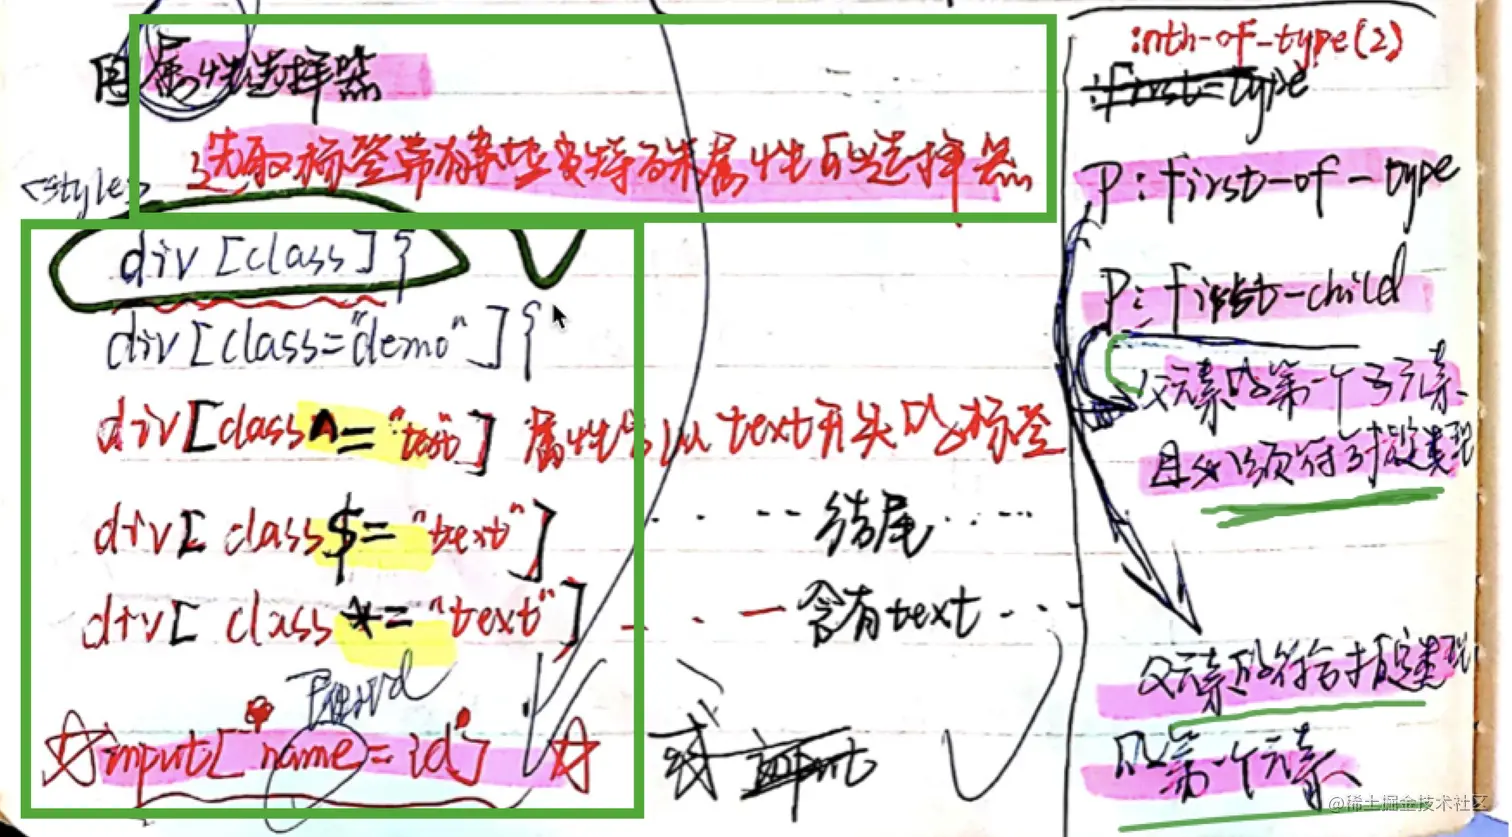 属性选择器
选取标签带有某些特殊属性的选择器
<style>
div [class] {
div [class="demo"] {
div [class ^= "text"] 属性为以 text 开头的标签
div [ class $= "text" ] 结尾
div [ class *= "text" ] 含有text
input["name = id"]
或
:nth-of-type(2)
:first-type
P : first-of-type
P : first-child
父元素的第一个子元素
且必须符合指定类型
父元素的符合指定类型
的第一个元素
@稀土掘金技术社区